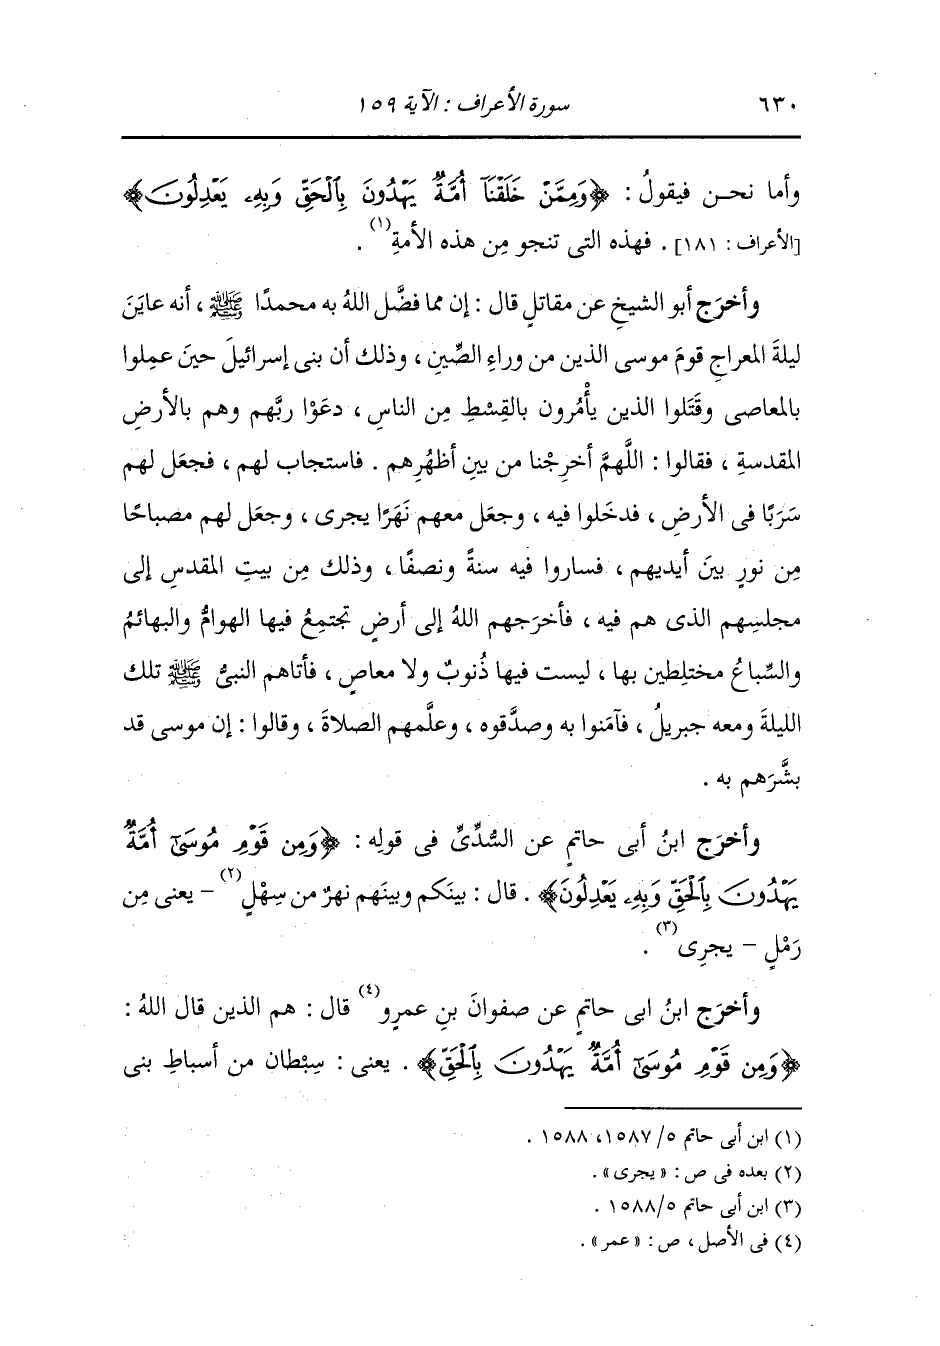 ٦٣٠ سورة الأعراف : الآية ١٥٩
وأما نحـن فيقولُ : ﴿وَمِمَّنْ خَلَقْنَآ أُمَّةٌ يَهْدُونَ بِالْحَقِّ وَبِهِۦ يَعْدِلُونَ﴾
[الأعراف : ١٨١] . فهذه التى تنجو مِن هذه الأمةِ(١) .
وأخرَج أبو الشيخِ عن مقاتلٍ قال : إن مما فضَّل اللهُ به محمدًا ﷺ ، أنه عاينَ
ليلةَ المعراجِ قومَ موسى الذين من وراءِ الصِّينِ ، وذلك أن بنى إسرائيلَ حينَ عمِلوا
بالمعاصى وقَتَلوا الذين يأْمُرون بالقِسْطِ مِن الناسِ ، دعَوْا ربَّهم وهم بالأرضِ
المقدسةِ ، فقالوا : اللَّهمَّ أخرِجْنا من بينِ أظهُرِهم . فاستجاب لهم ، فجعَل لهم
سَرَبًا فى الأرضِ ، فدخَلوا فيه ، وجعَل معهم نَهَرًا يجرى ، وجعَل لهم مصباحًا
مِن نورٍ بينَ أيديهم ، فساروا فيه سنةً ونصفًا ، وذلك مِن بيتِ المقدسِ إلى
مجلسِهم الذى هم فيه ، فأخرَجهم اللهُ إلى أرضٍ تجتمِعُ فيها الهوامُّ والبهائمُ
والسِّباعُ مختلِطين بها ، ليست فيها ذُنوبٌ ولا معاصٍ ، فأتاهم النبىُّ ﷺ تلك
الليلةَ ومعه جبريلُ ، فآمَنوا به وصدَّقوه ، وعلَّمهم الصلاةَ ، وقالوا : إن موسى قد
بشَّرَهم به .
وأخرَج ابنُ أبى حاتمٍ عن السُّدِّىِّ فى قولِه : ﴿وَمِن قَوْمِ مُوسَىٰٓ أُمَّةٌ
يَهْدُونَ بِالْحَقِّ وَبِهِۦ يَعْدِلُونَ﴾ . قال : بينَكم وبينَهم نهرٌ من سِهْلٍ(٢) – يعنى مِن
رَمْلٍ – يجرِى(٣) .
وأخرَج ابنُ ابى حاتمٍ عن صفوانَ بنِ عمرٍو(٤) قال : هم الذين قال اللهُ :
﴿وَمِن قَوْمِ مُوسَىٰٓ أُمَّةٌ يَهْدُونَ بِالْحَقِّ﴾ . يعنى : سِبْطان من أسباطِ بنى
(١) ابن أبى حاتم ٥/ ١٥٨٧، ١٥٨٨ .
(٢) بعده فى ص : « يجرى » .
(٣) ابن أبى حاتم ١٥٨٨/٥ .
(٤) فى الأصل ، ص : « عمر » .